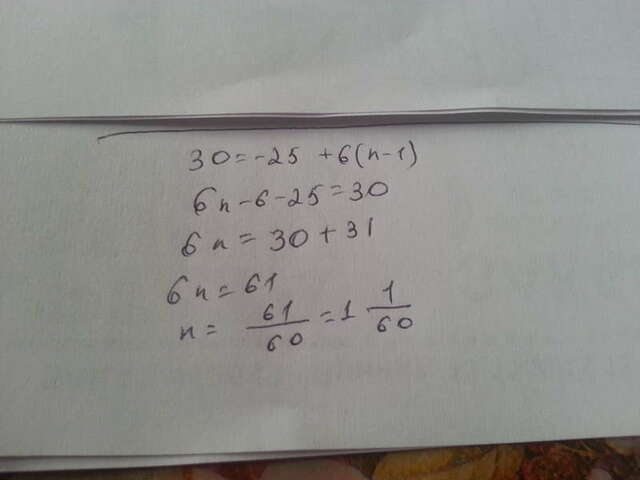 30=-25 +6(n-1)
6n-6-25=30
6n=30+31
6n=61
n= 61/60 =1 1/60